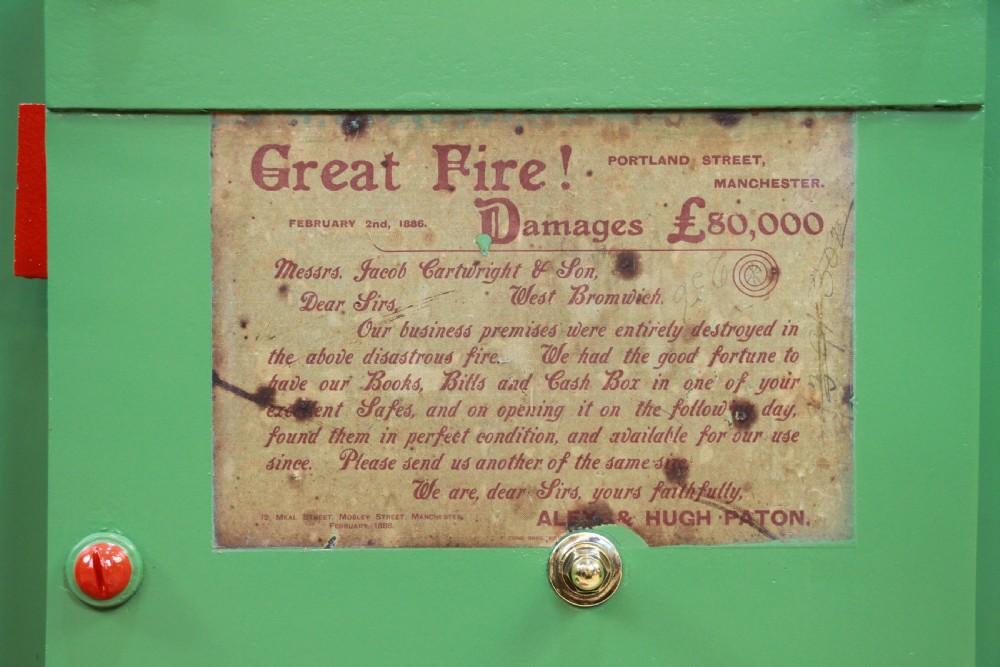 Great Fire! PORTLAND STREET,
MANCHESTER.
FEBRUARY 2nd, 1886. Damages £80,000
Messrs. Jacob Cartwright & Son,
Dear Sirs, West Bromwich.
Our business premises were entirely destroyed in
the above disastrous fire. We had the good fortune to
have our Books, Bills and Cash Box in one of your
Safes, and on opening it on the day,
found them in perfect condition, and available for our use
since. Please send us another of the same
We are, dear Sirs, yours faithfully,
12, MEAL STREET, MOSLEY STREET, MANCHESTER. & HUGH PATON.
FEBRUARY 1886.